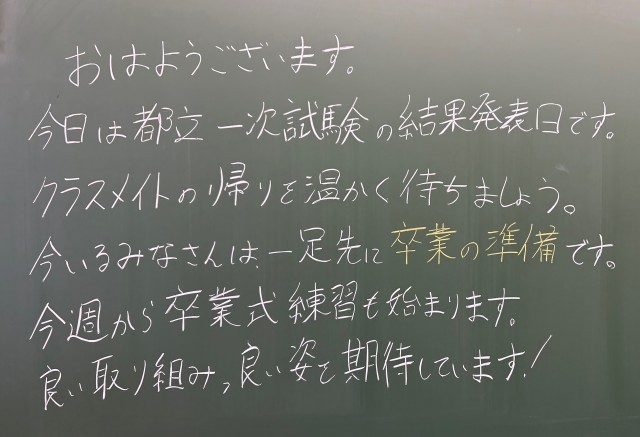 おはようございます。
今日は都立一次試験の結果発表日です。
クラスメイトの帰りを温かく待ちましょう。
今いるみなさんは、一足先に卒業の準備です。
今週から卒業式練習も始まります。
良い取り組み、良い姿を期待しています!